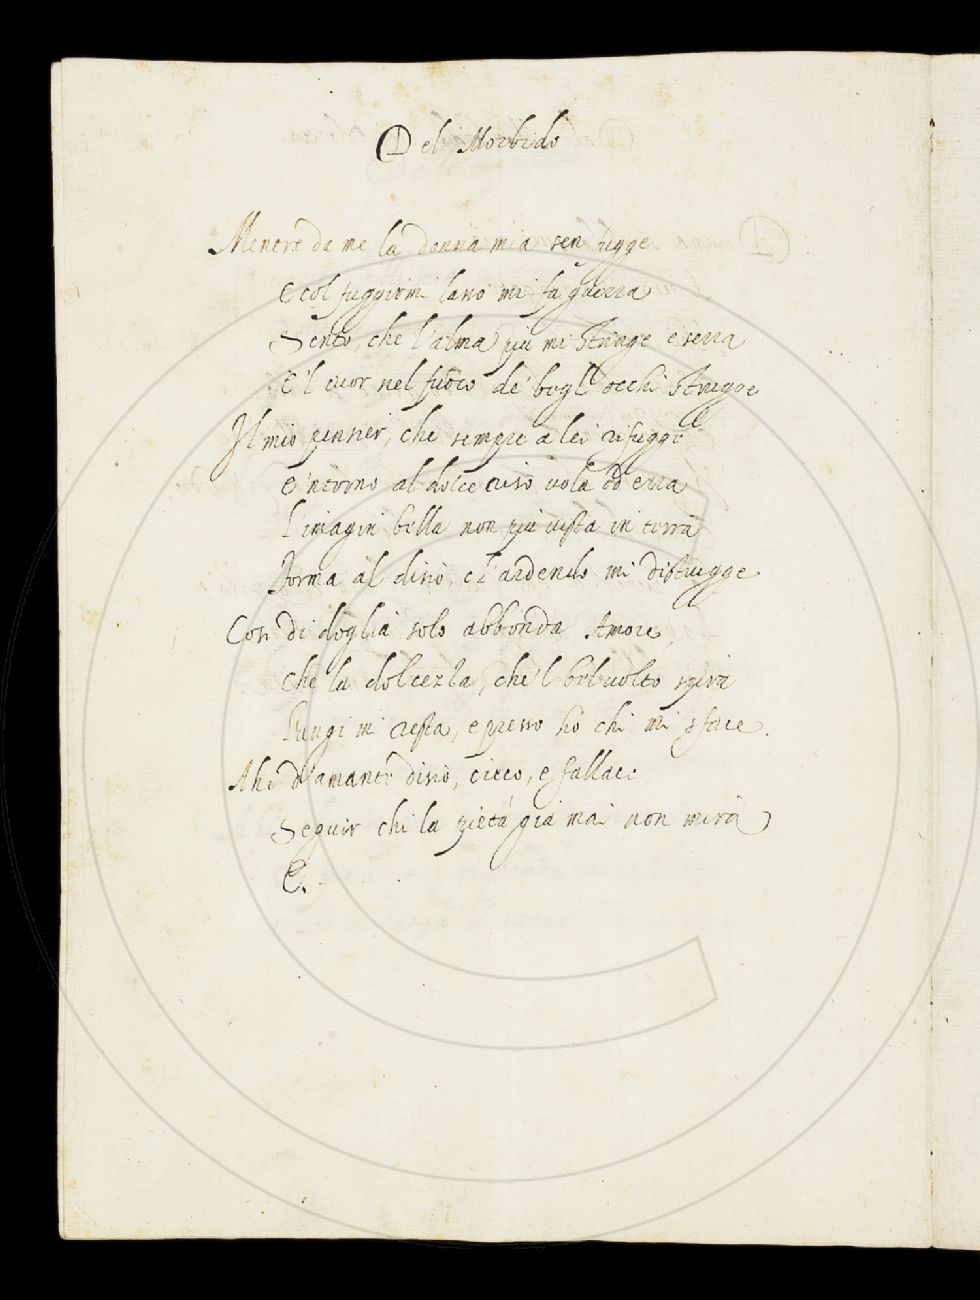 Del Morbido
Mentre da me la donna mia sen fugge
E col fuggirmi lasso mi fa guerra
Sento, che l'alma piu mi stringe e serra
E'l cuor nel fuoco de' begl'occhi strugge
Il mio pensier, che sempre a lei rifugge
E'ntorno al dolce viso vola ed erra
L'imagin bella non piu vista in terra
Forma al disio, e l'ardendo mi distrugge
Cosi di doglia solo abbonda Amore,
Che la dolcezza, che'l bel volto spira
Lungi mi resta, e presso ho chi mi sface.
Ahi d'amante disio, cieco, e fallace
Seguir chi la pietà gia mai non mira
E.